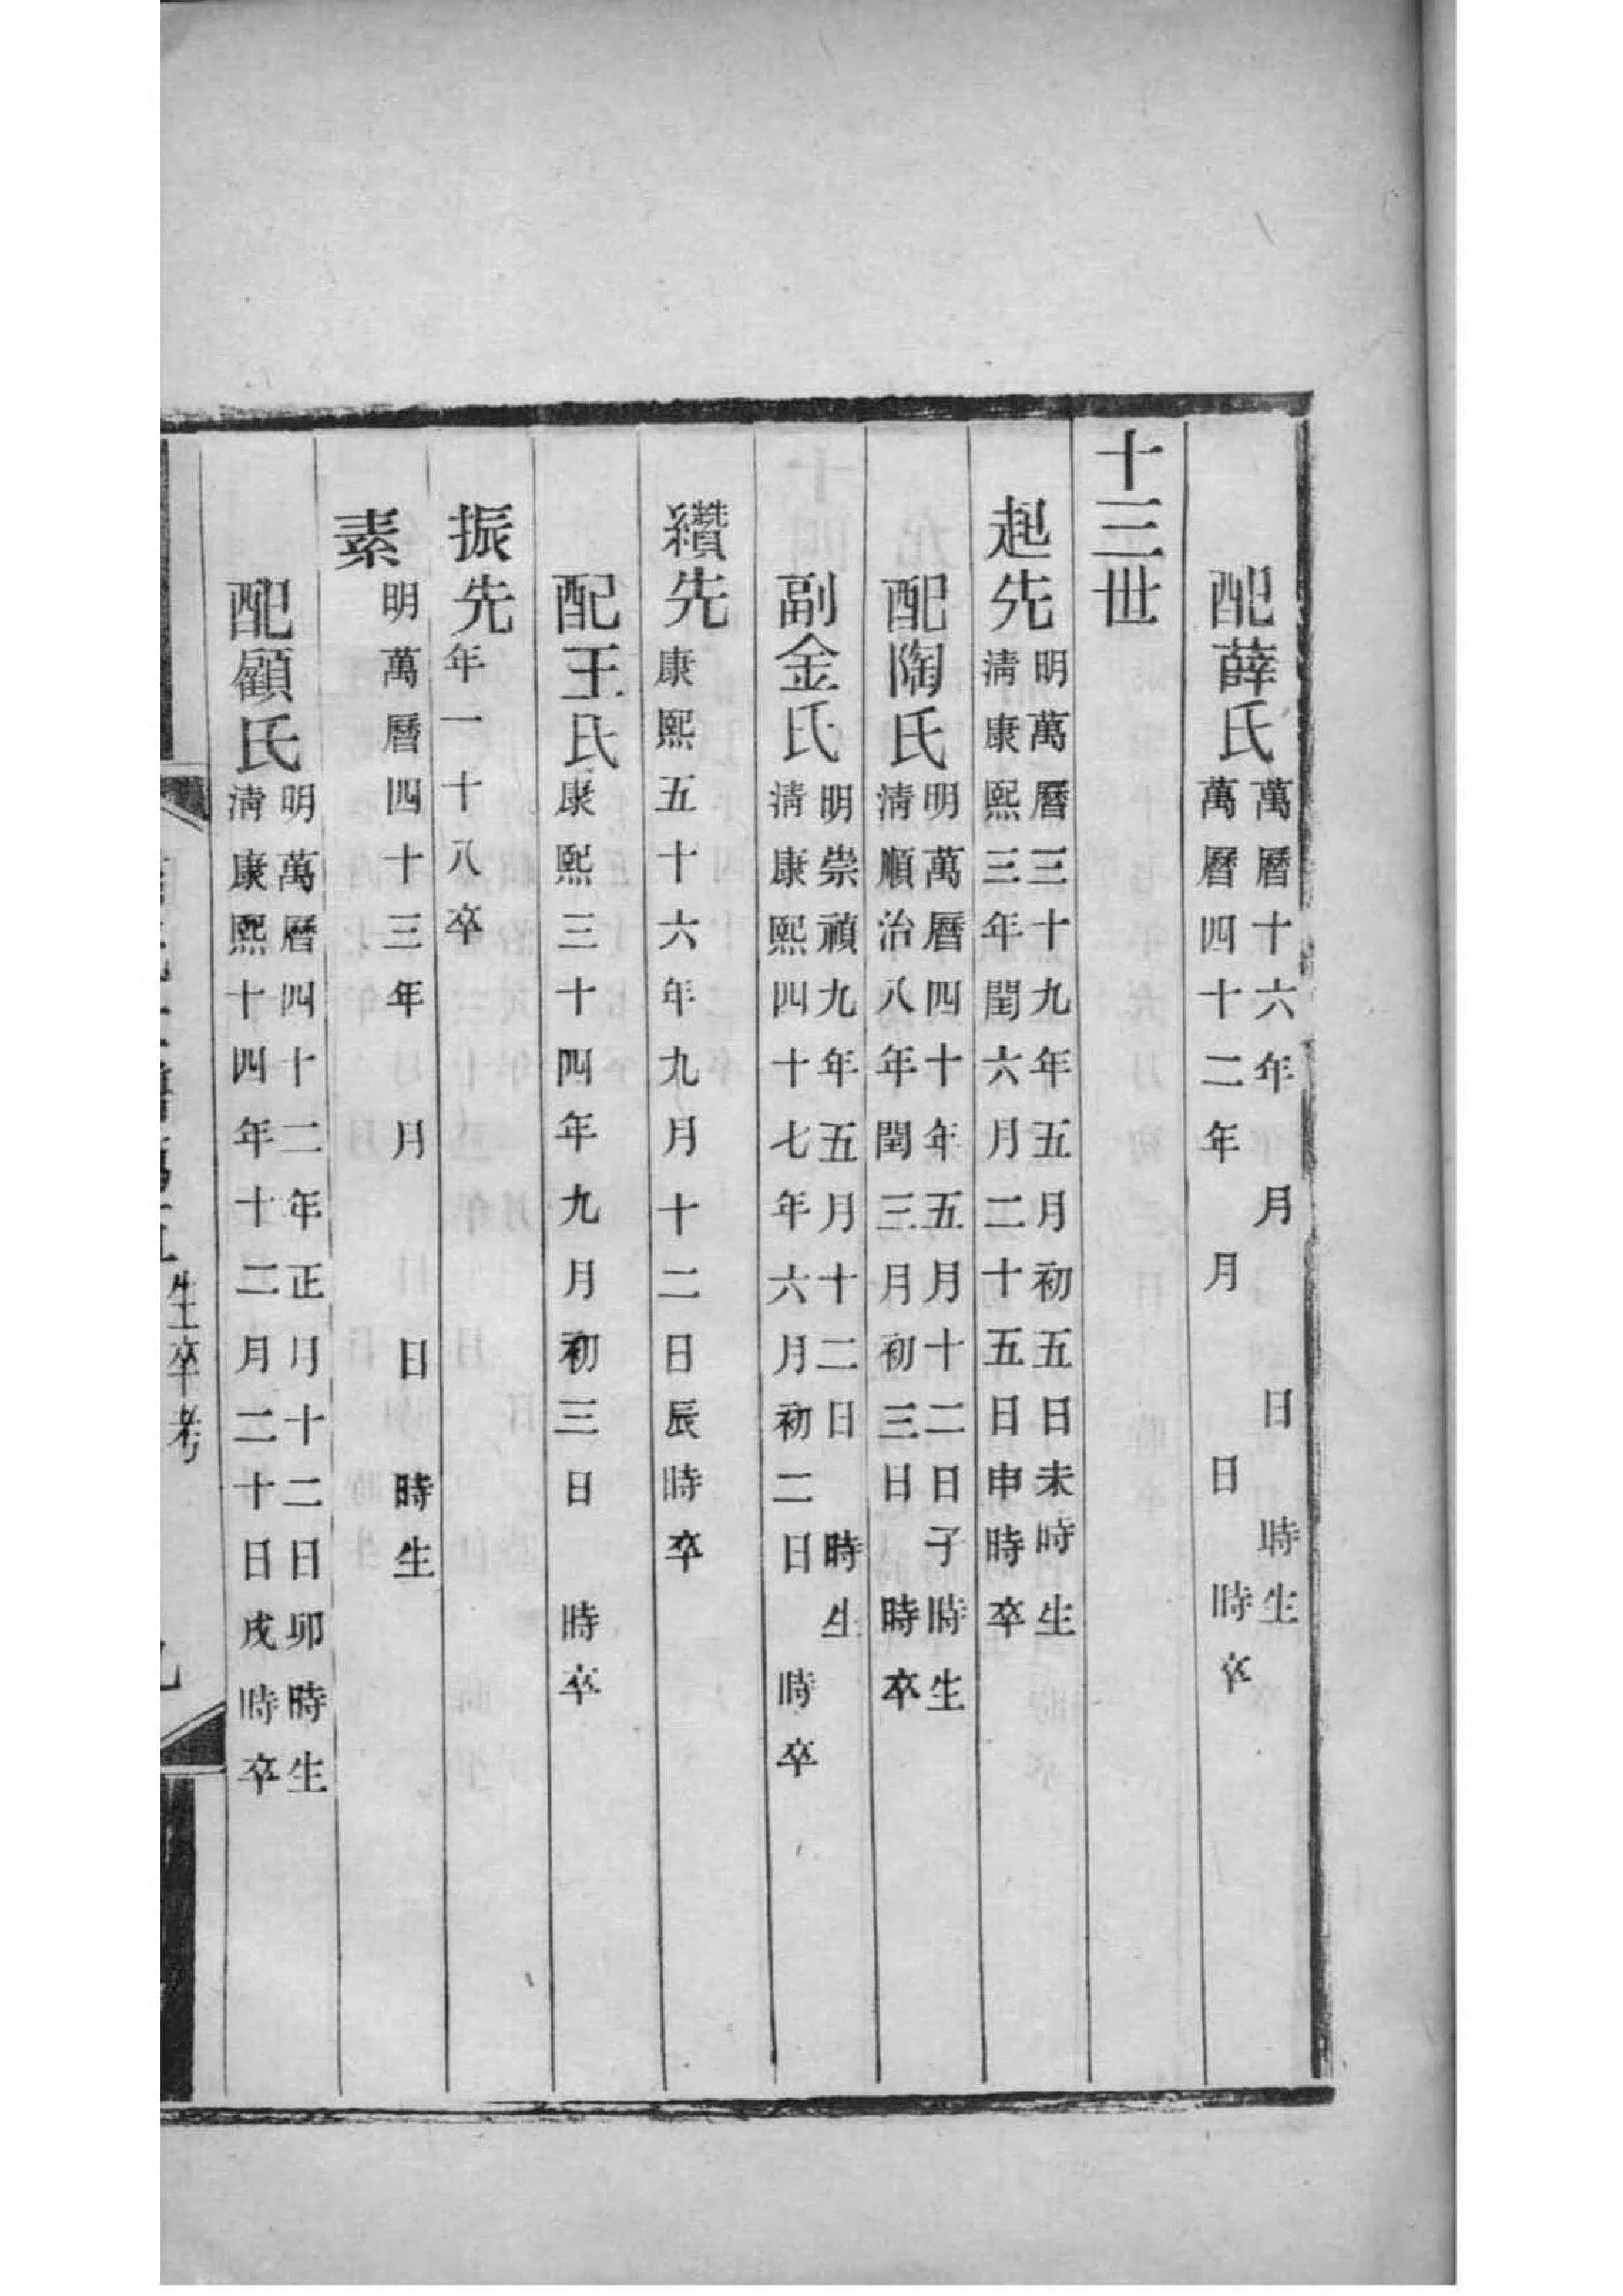 配薛氏
萬曆十六年　月　日　時生
萬曆四十二年　月　日　時卒
十三世
起先
明萬曆三十九年五月初五日未時生
清康熙三年閏六月二十五日申時卒
配陶氏
明萬曆四十年五月十二日子時生
清順治八年閏三月初三日　時卒
副金氏
明崇禎九年五月十二日　時生
清康熙四十七年六月初二日　時卒
纘先
康熙五十六年九月十二日辰時卒
配王氏
康熙三十四年九月初三日　時卒
振先
年一十八卒
素
明萬曆四十三年　月　日　時生
配顧氏
明萬曆四十二年正月十二日卯時生
清康熙十四年十二月二十日戌時卒
生卒考